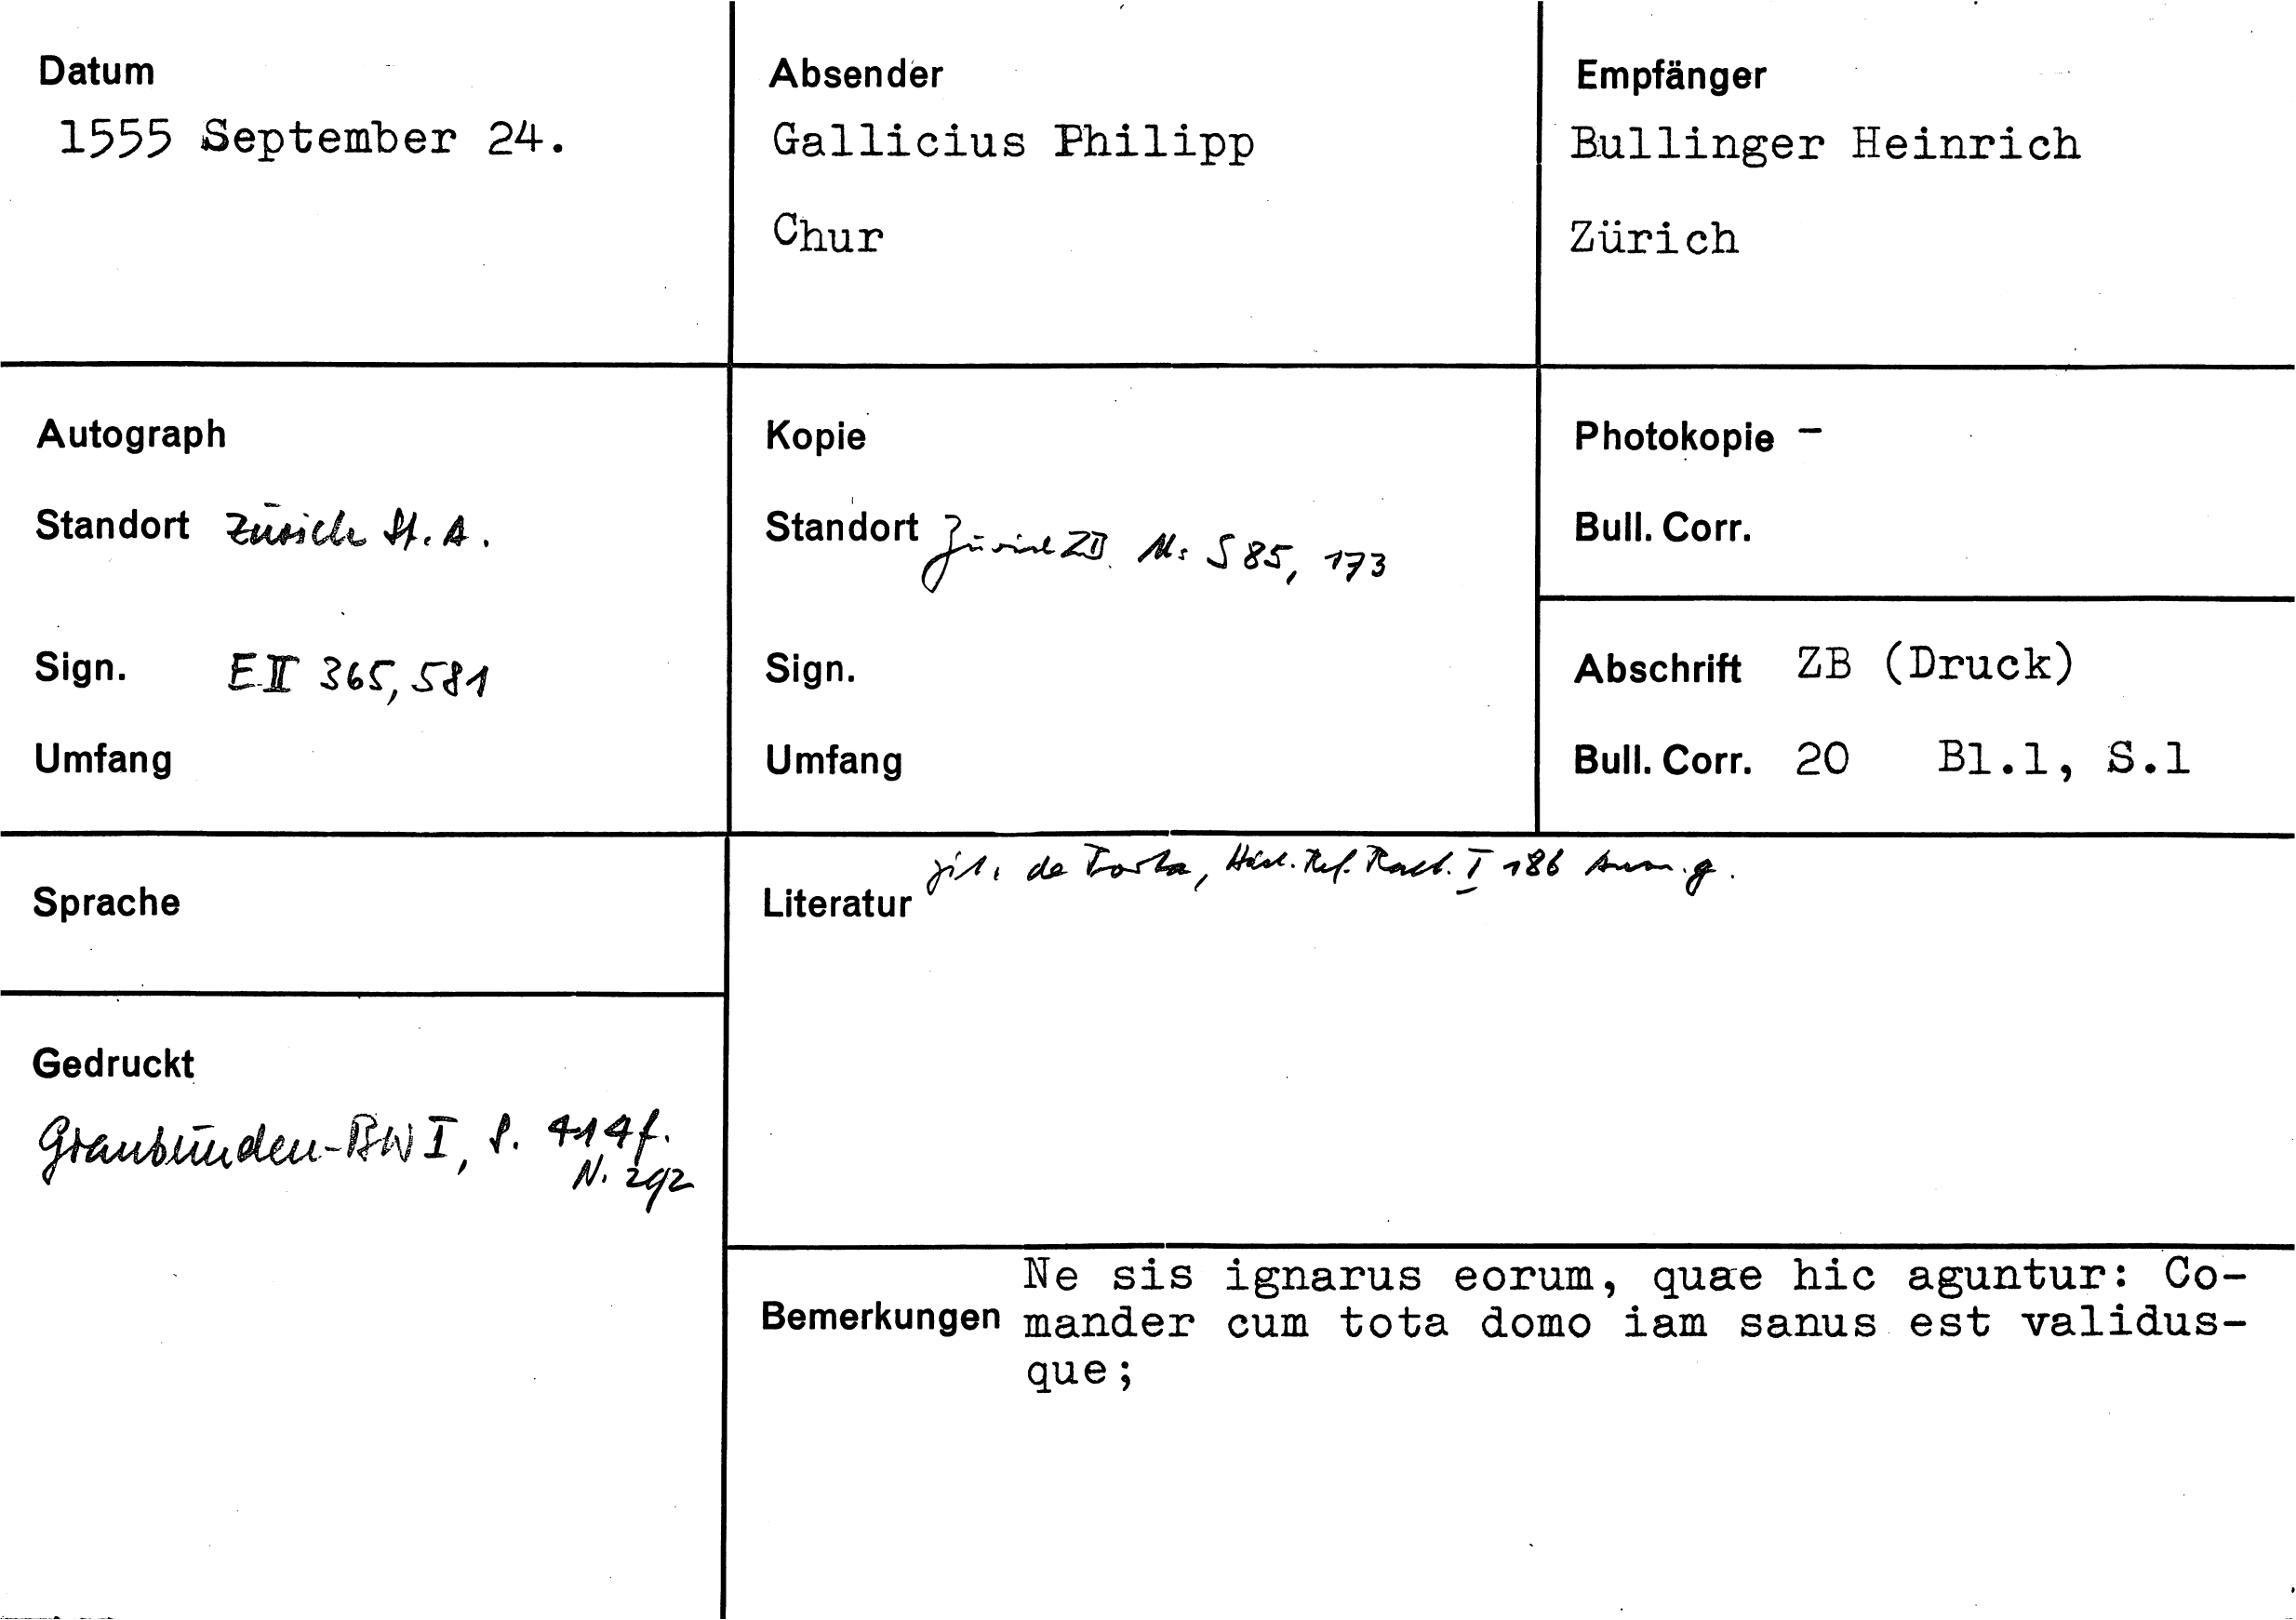 Datum
1555 September 24.
Absender
Gallicius Philipp
Chur
Empfänger
Bullinger Heinrich
Zürich
Autograph
Standort Zürich St. A.
Sign. E II 365, 581
Umfang
Kopie
Standort Zürich ZB. Ms S 85, 173
Sign.
Umfang
Photokopie -
Bull. Corr.
Abschrift ZB (Druck)
Bull. Corr. 20 Bl.1, S.1
Sprache
Gedruckt
Graubünden-BW I, S. 414f.
N. 292
zit. de Porta, Hist. Ref. Raet. I 186 Anm. g.
Literatur
Bemerkungen
Ne sis ignarus eorum, quae hic aguntur: Co-
mander cum tota domo iam sanus est validus-
que;